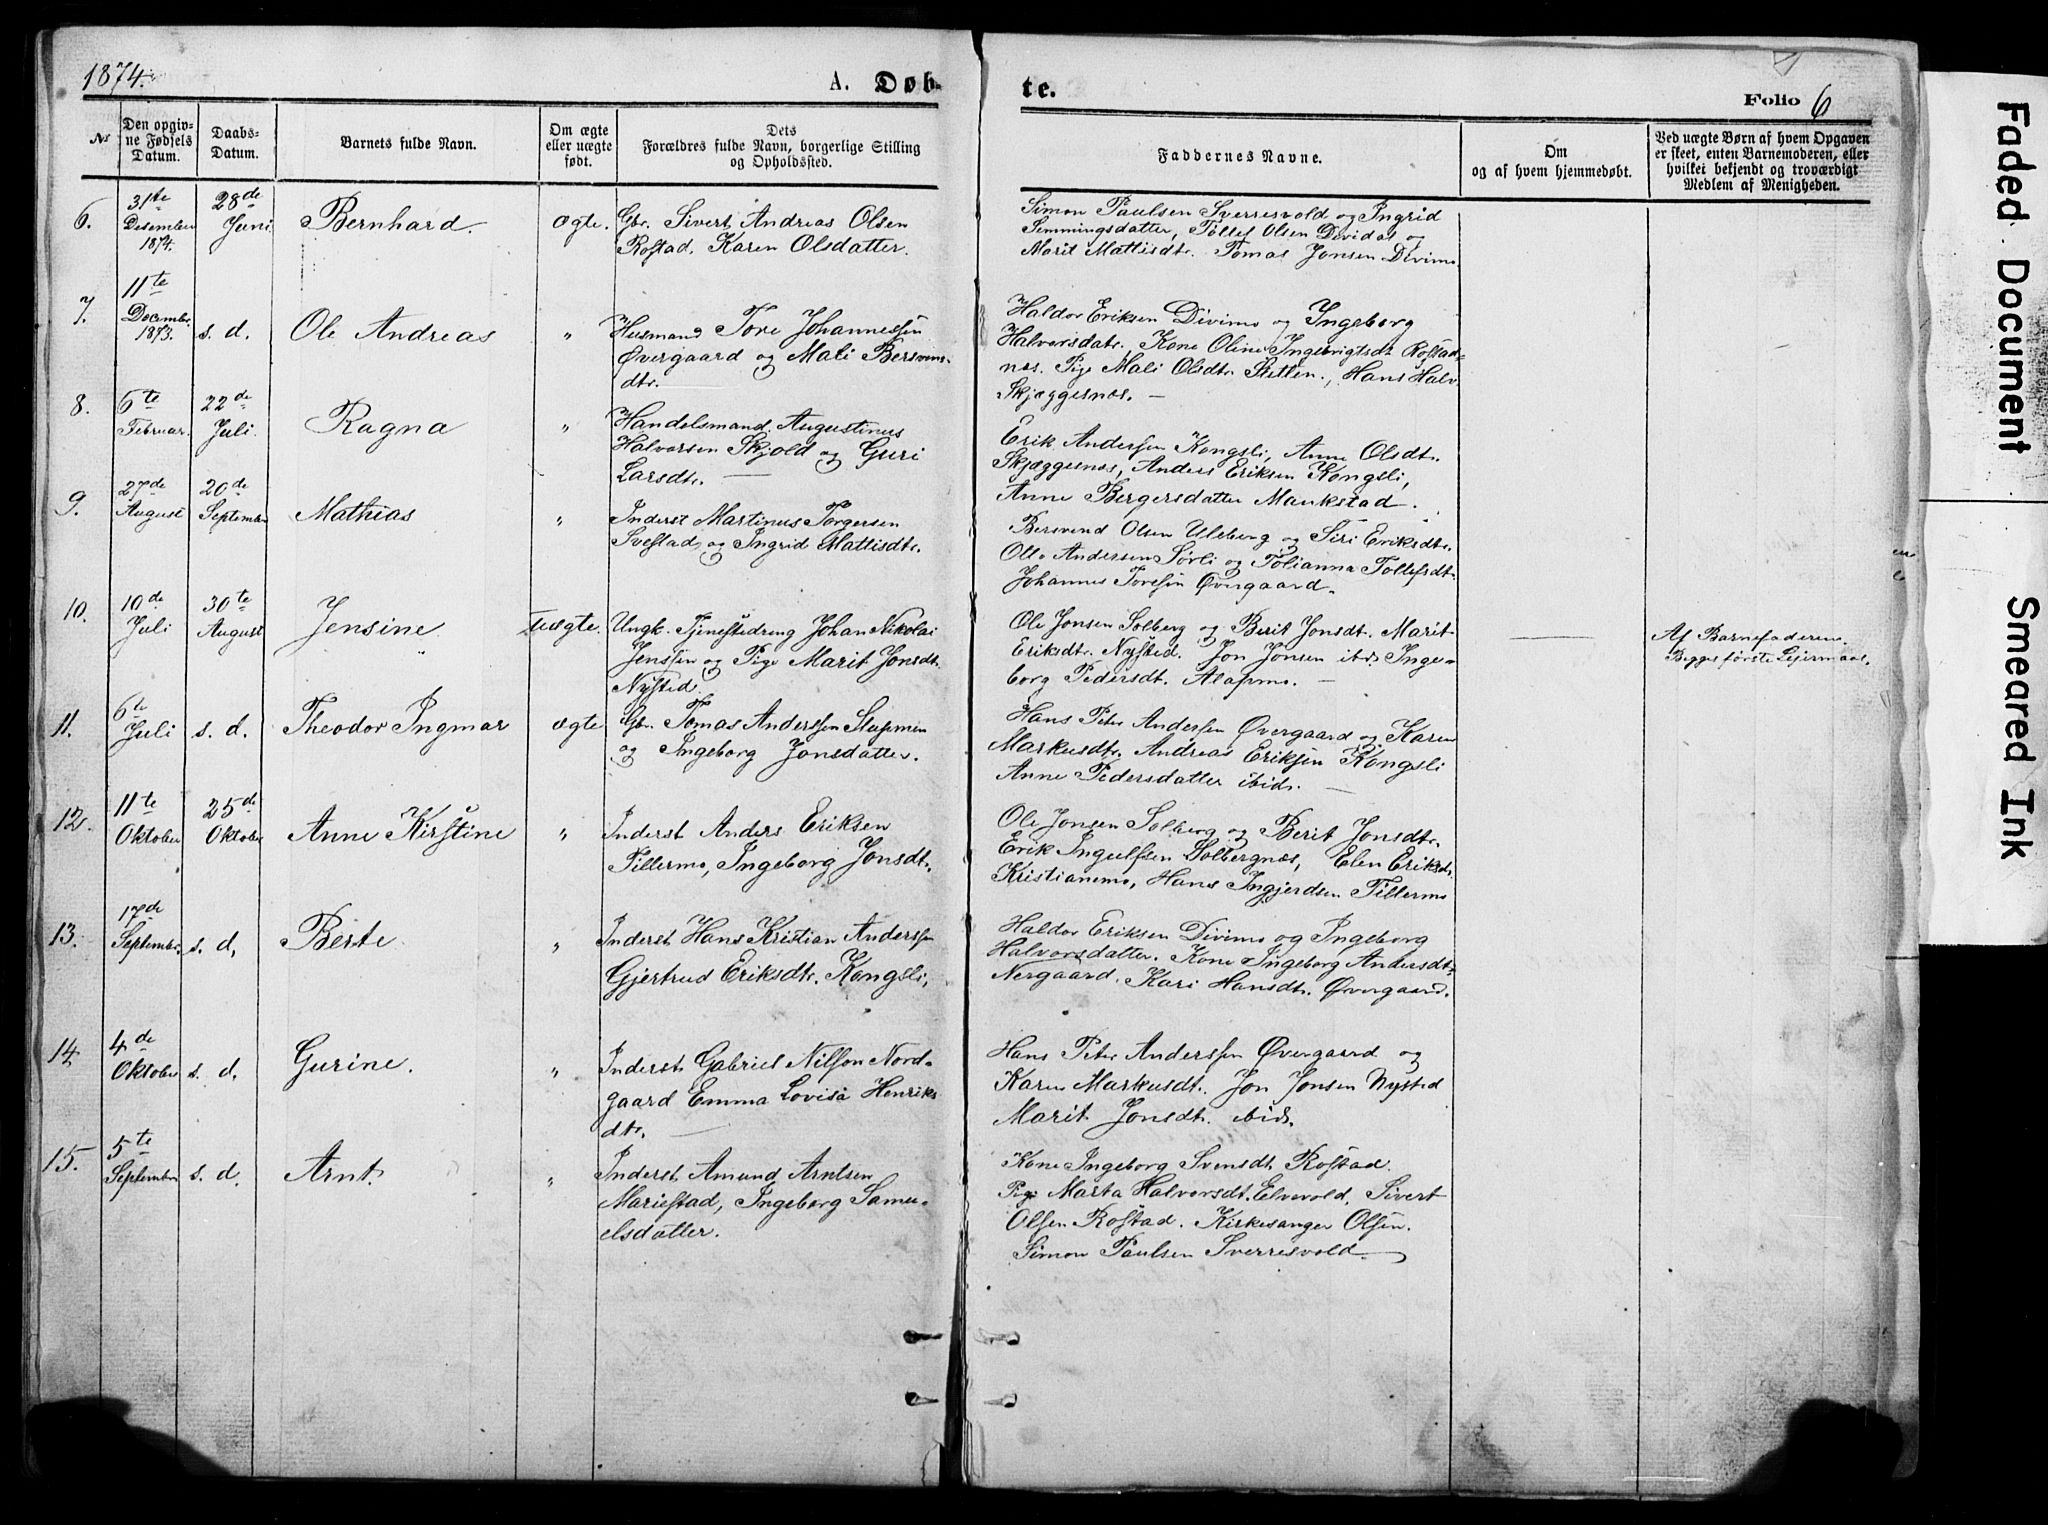 1874.
A. Døb-
te.
Folio 6
Nr
Den opgiv-
ne Fødsels
Datum.
Daabs-
Datum.
Barnets fulde Navn.
Om ægte
eller uægte
født.
Dets
Forældres fulde Navn, borgerlige Stilling
og Opholdssted.
Faddernes Navne.
Om
og af hvem hjemmedøbt.
Ved uægte Børn af hvem Opgaven
er skeet, enten Barnemoderen, eller
hvilket bekjendt og troværdigt
Medlem af Menigheden.
6.
31te
Desember
1874.
28de
Juni
Bernhard.
ægte.
Gbr. Sivert Andreas Olsen
Rostad, Karen Olsdatter.
Simon Paulsen Sverresvold og Ingrid
Semmingsdatter, Tollef Olsen Dividal og
Marit Mattisdtr. Tomas Jonsen Divimo
7.
11te
Decembr.
1873.
s. d.
Ole Andreas
"
Huusmand Tore Johannessen
Øvergaard og Mali Bersvens-
dtr.
Haldor Eriksen Divimo og Ingeborg
Halvorsdatr. Kone Oline Ingebrigtsdt Rostad-
næs. Pige Mali Olsdtr Sletten., Hans Halv.
Skjæggesnæs. —
8.
6te
Februar.
22de
Juli.
Ragna
"
Handelsmand Augustinus
Halvorsen Skjold og Guri
Larsdtr. —
Erik Anderssen Kongsli, Anne Olsdtr.
Skjæggesnæs, Anders Eriksen Kongsli,
Anne Bergersdatter Maukstad.
9.
27de
August
20de
September
Mathias
"
Inderst Martinus Torgersen
Svestad, og Ingrid Mattisdtr.
Bersvend Olsen Ulsberg og Siri Eriksdtr.
Olle Andersen Sørli og Tolianna Tollefsdt.
Johannes Toresen Øvergaard.
10.
10de
Juli
30te
August
Jensine
uægte.
Ungk. Tjenestedreng Johan Nikolai
Jenssen og Pige Marit Jonsdt.
Nysted
Ole Jonsen Solberg og Berit Jonsdt. Marit
Eriksdtr. Nysted. Jon Jonsen ibid. Inge-
borg Pedersdt. Alapmo. —
Af Barnefaderen.
Begges første Leiermaal.
11.
6te
Juli
s. d.
Theodor Ingmar
ægte
Gbr. Tomas Anderssen Slupmen
og Ingeborg Jonsdatter.
Hans Peter Anderssen Øvergaard og Karen
Markusdtr. Andreas Eriksen Kongsli
Anne Pedersdatter ibid. —
12.
11te
Oktober
25de
Oktober
Anne Kirstine
"
Inderst Anders Eriksen
Tillermo, Ingeborg Jonsdt.
Ole Jonsen Solberg og Berit Jonsdtr.
Erik Ingulfsen Solbergnæs, Elen Eriksdt.
Kristianemo, Hans Ingjerdsen Tillermo
13.
17de
Septembr.
s. d.
Berte
"
Inderst Hans Kristian Anderssen
Gjertrud Eriksdtr. Kongsli,
Haldor Eriksen Divimo og Ingeborg
Halvorsdatter. Kone Ingeborg Andersdt.
Nergaard. Kari Hansdtr. Øvergaard.
14.
4de
Oktober
s. d.
Gurine.
"
Inderst Gabriel Nilsson Nord-
gaard Emma Lovisa Henriks
dtr. —
Hans Peter Anderssen Øvergaard og
Karen Markusdt. Jon Jonsen Nysted
Marit Jonsdt. ibid.
15.
5te
September
s. d.
Arnt.
"
Inderst Amund Arntsen
Mariestad, Ingeborg Samu-
elsdatter.
Kone Ingeborg Svensdt Rostad.
Pige Marta Halvorsdt. Elvevold, Sivert
Olsen Rostad. Kirkesanger Olsen.
Simon Paulsen Sverresvold.
Faded Document
Smeared Ink